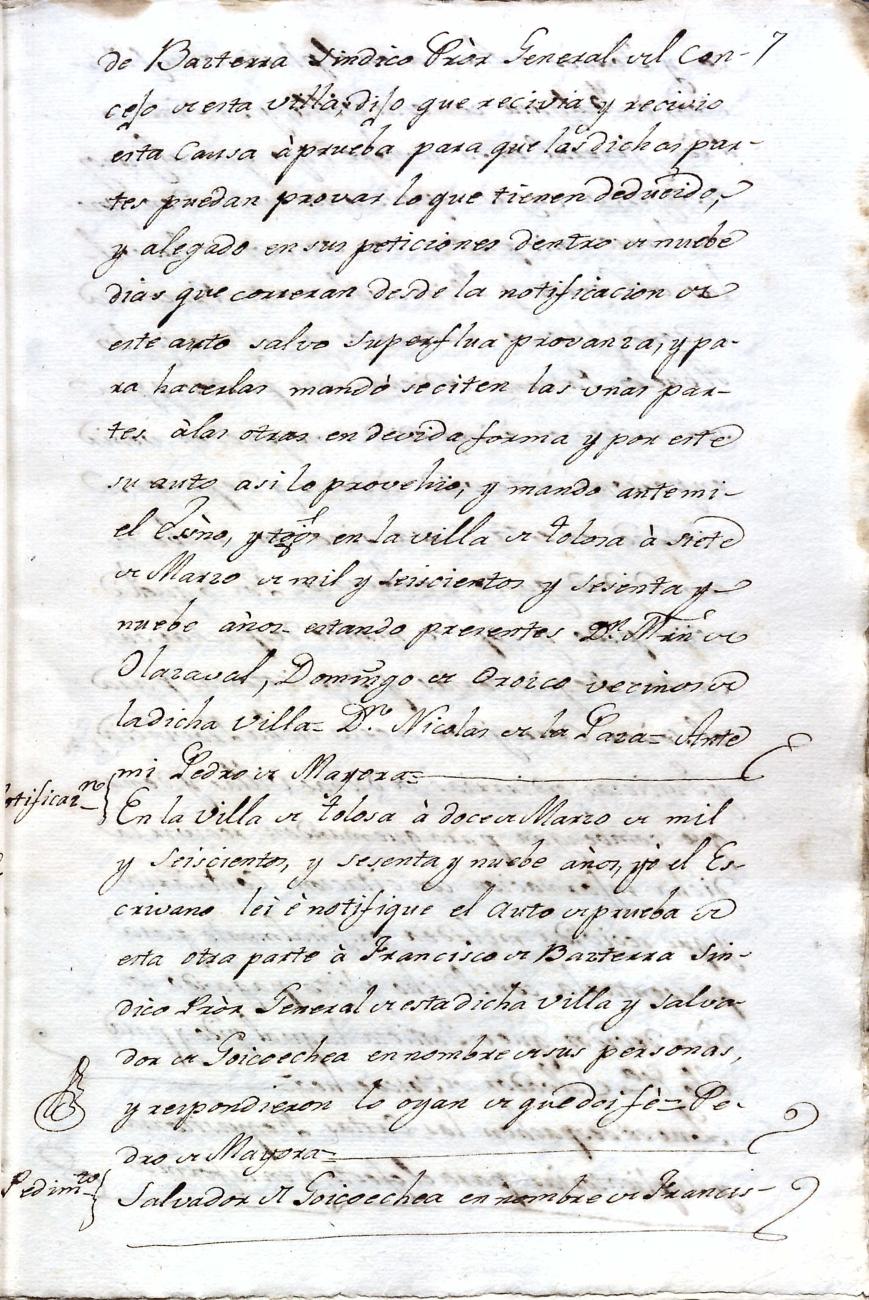 de Bazterra Sindico Pròr General del Con- 7
cejo de esta villa, dijo que recivia y recivio
esta Causa à prueba para que las dichas par-
tes puedan provar lo que tienen deducido,
y alegado en sus peticiones dentro de nuebe
dias que correran desde la notificacion de
este auto salvo superflua provanza, y pa-
ra hacerlas mandò se citen las unas par-
tes à las otras en devida forma y por este
su auto asi lo provehio, y mando ante mi
el Esno, y tgos en la villa de tolosa à siete
de Marzo de mil y seiscientos y sesenta y
nuebe años estando presentes Dn. Mrñ de
Olazaval, Domingo de Orozco vecinos de
la dicha villa= Dn. Nicolas de la Paza= Ante
mi Pedro de Mayora=
Notificazn
En la villa de tolosa à doce de Marzo de mil
y seiscientos, y sesenta y nuebe años, yò el Es-
crivano leì è notifique el auto de prueba de
esta otra parte à Francisco de Bazterra Sin-
dico Pròr General de esta dicha villa y Salva-
dor de Goicoechea en nombre de sus personas,
y respondieron lo oyan de que doi fè= Pe-
dro de Mayora=
Pedimto
Salvador de Goicoechea en nombre de Francis-